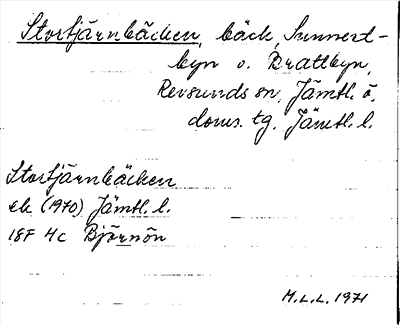 Stortjärnbäcken, bäck, Sunnert-
byn o. Brattbyn,
Revsunds sn, Jämtl. ö.
doms. tg. Jämtl. l.
Stortjärnbäcken
ek (1970) Jämtl. l.
18F 4c Björnön
M.L.L. 1971